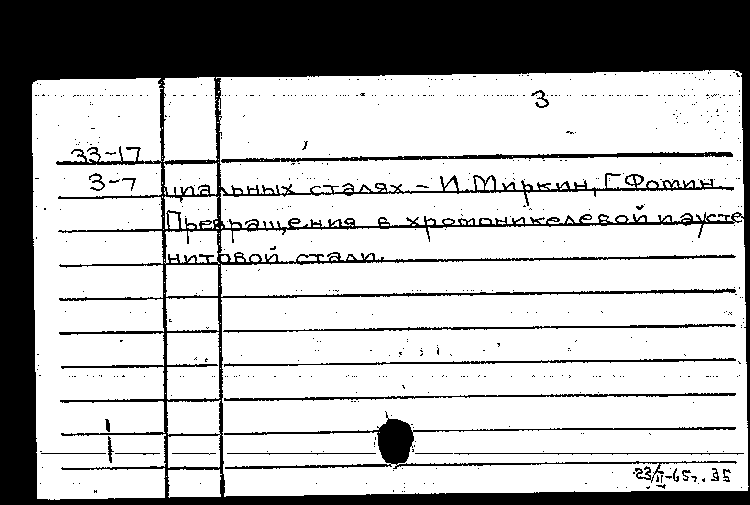 3
33-17
3-7 циальных сталях. – И. Миркин, Г. Фомин.
Превращения в хромоникелевой и аусте
нитовой стали.